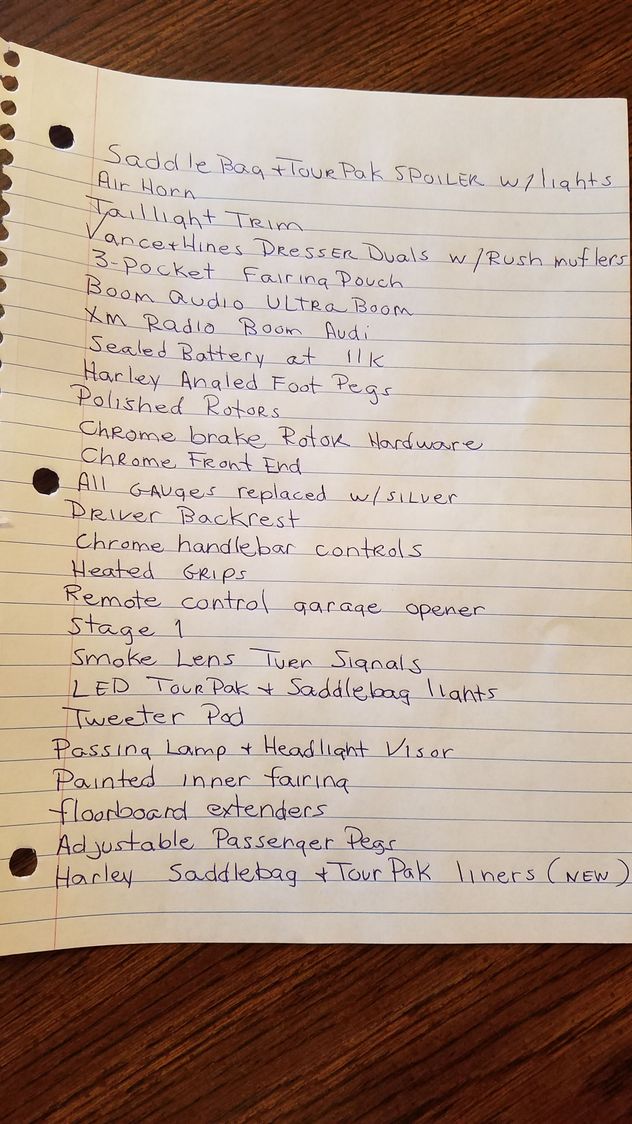 Saddle Bag + Tour Pak SPOILER w/lights
Air Horn
Taillight Trim
Vance + Hines Dresser Duals w/Rush muflers
3-Pocket Fairing Pouch
Boom audio ULtra Boom
XM Radio Boom Audi
Sealed Battery at 11K
Harley Angled Foot Pegs
Polished Rotors
Chrome brake Rotor Hardware
Chrome Front End
All GAUges replaced w/SILVER
Driver Backrest
Chrome handlebar controls
Heated GRIPS
Remote control garage opener
Stage 1
Smoke Lens Tuer Signals
LED TourPak + Saddlebag lights
Tweeter Pod
Passing Lamp + Headlight Visor
Painted inner fairing
floorboard extenders
Adjustable Passenger Pegs
Harley Saddlebag + Tour Pak liners (NEW)